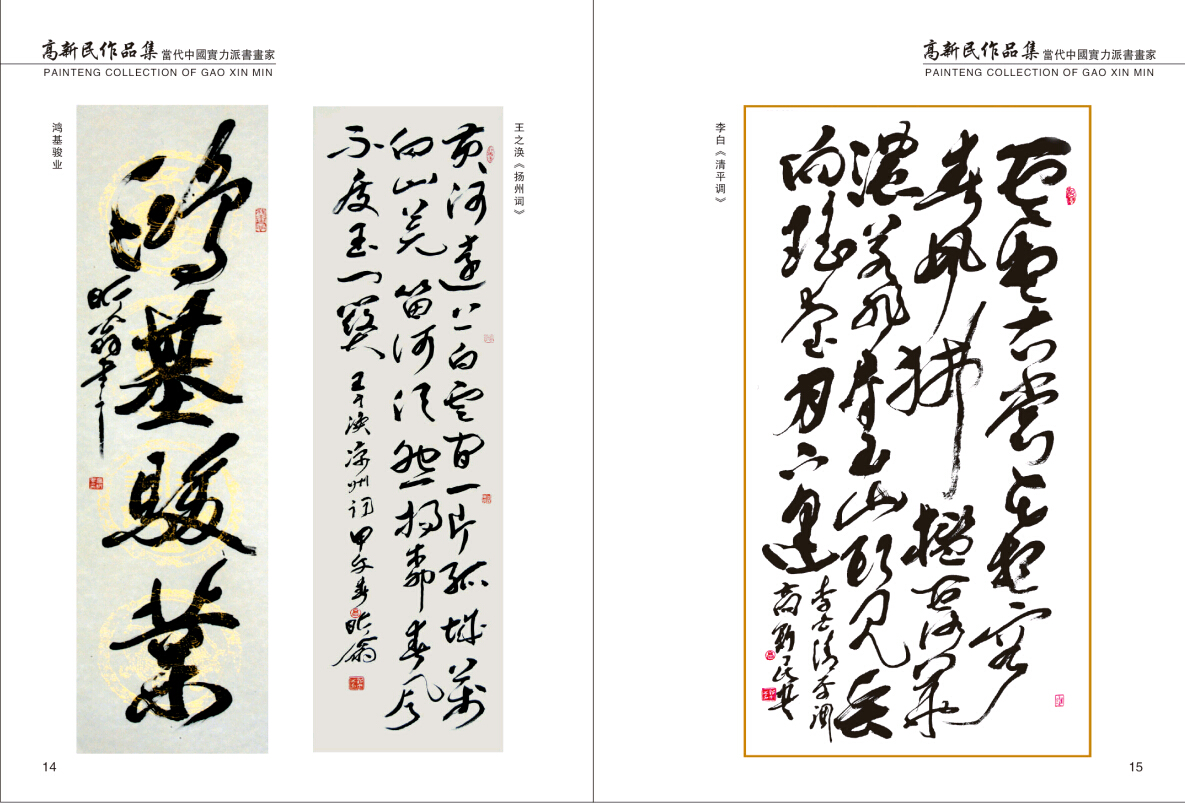 高新民作品集 當代中國實力派書畫家
PAINTENG COLLECTION OF GAO XIN MIN
鸿基骏业
鴻基駿業
昕翁書
王之涣《扬州词》
黄河遠上白雲间一片孤城萬
仞山羌笛何须怨楊柳春风
不度玉门關
王之涣凉州词甲午春昕翁
14
高新民作品集 當代中國實力派書畫家
PAINTENG COLLECTION OF GAO XIN MIN
李白《清平调》
雲想衣裳花想容
春風拂檻露華
濃若非群玉山頭見会
向瑤台月下逢
李白清平调
高新民書
15